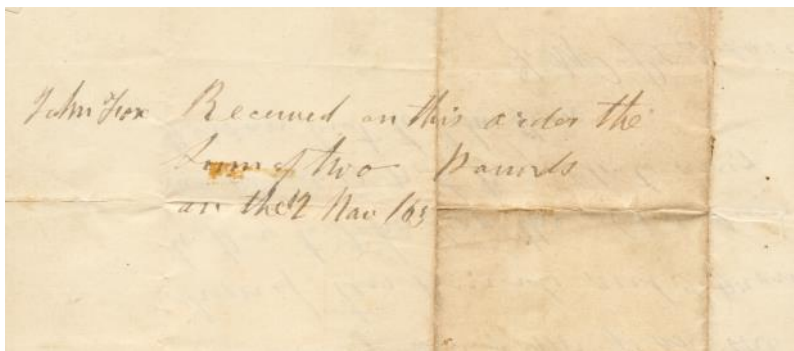 John Fox Received on this order the
Sum of two Pounds
on the 12 Nov